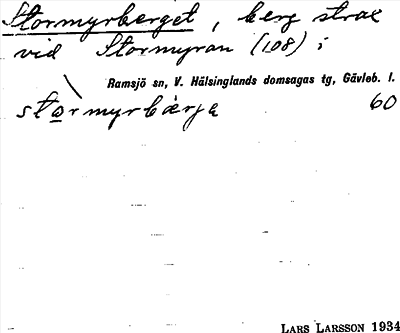 Stormyrberget, berg strax
vid Stormyran (108) i
Ramsjö sn, V. Hälsinglands domsagas tg, Gävleb. l.
stormyrbærja 60
LARS LARSSON 1934